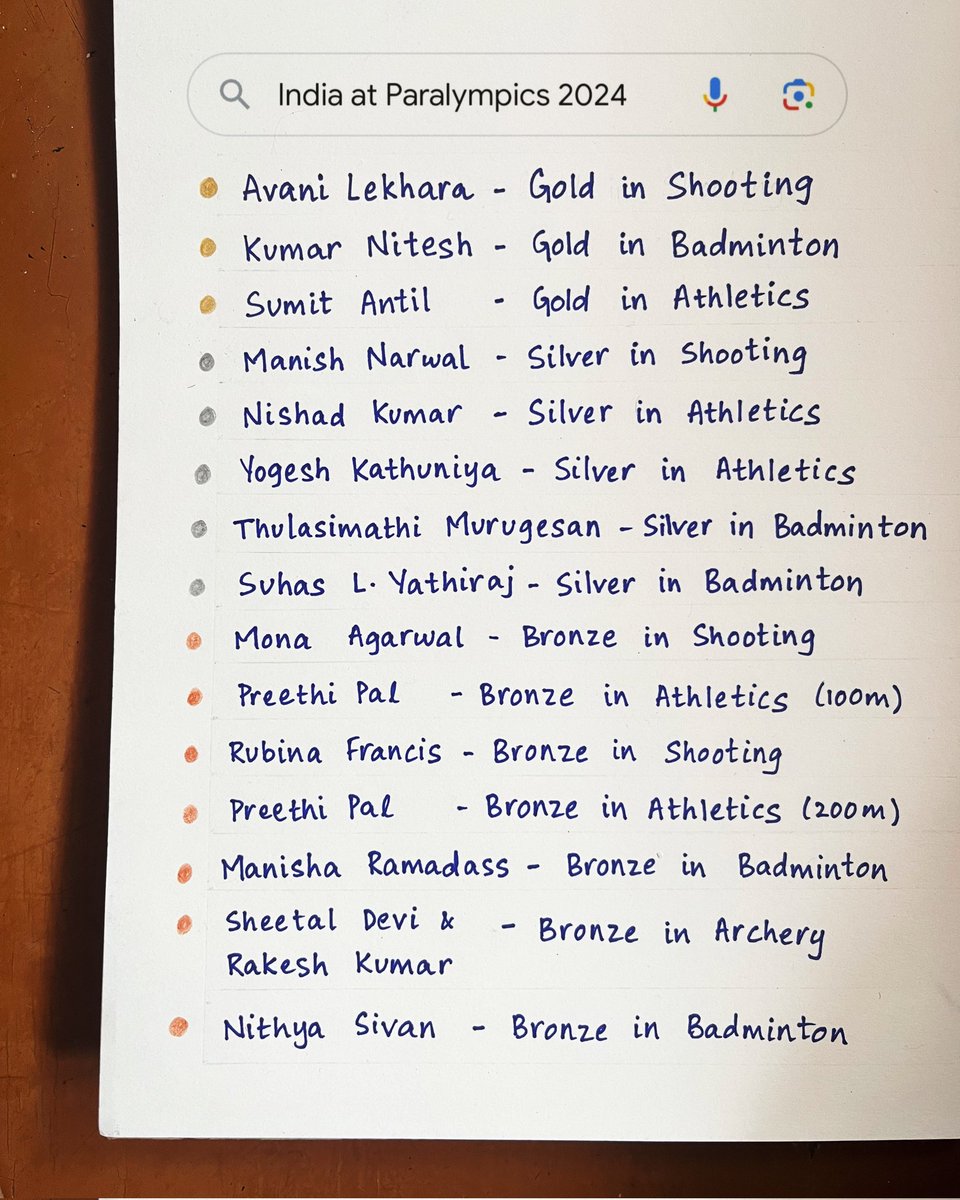 India at Paralympics 2024
Avani Lekhara - Gold in Shooting
Kumar Nitesh - Gold in Badminton
Sumit Antil - Gold in Athletics
Manish Narwal - Silver in Shooting
Nishad Kumar - Silver in Athletics
Yogesh Kathuniya - Silver in Athletics
Thulasimathi Murugesan - Silver in Badminton
Suhas L. Yathiraj - Silver in Badminton
Mona Agarwal - Bronze in Shooting
Preethi Pal - Bronze in Athletics (100m)
Rubina Francis - Bronze in Shooting
Preethi Pal - Bronze in Athletics (200m)
Manisha Ramadass - Bronze in Badminton
Sheetal Devi & - Bronze in Archery
Rakesh Kumar
Nithya Sivan - Bronze in Badminton